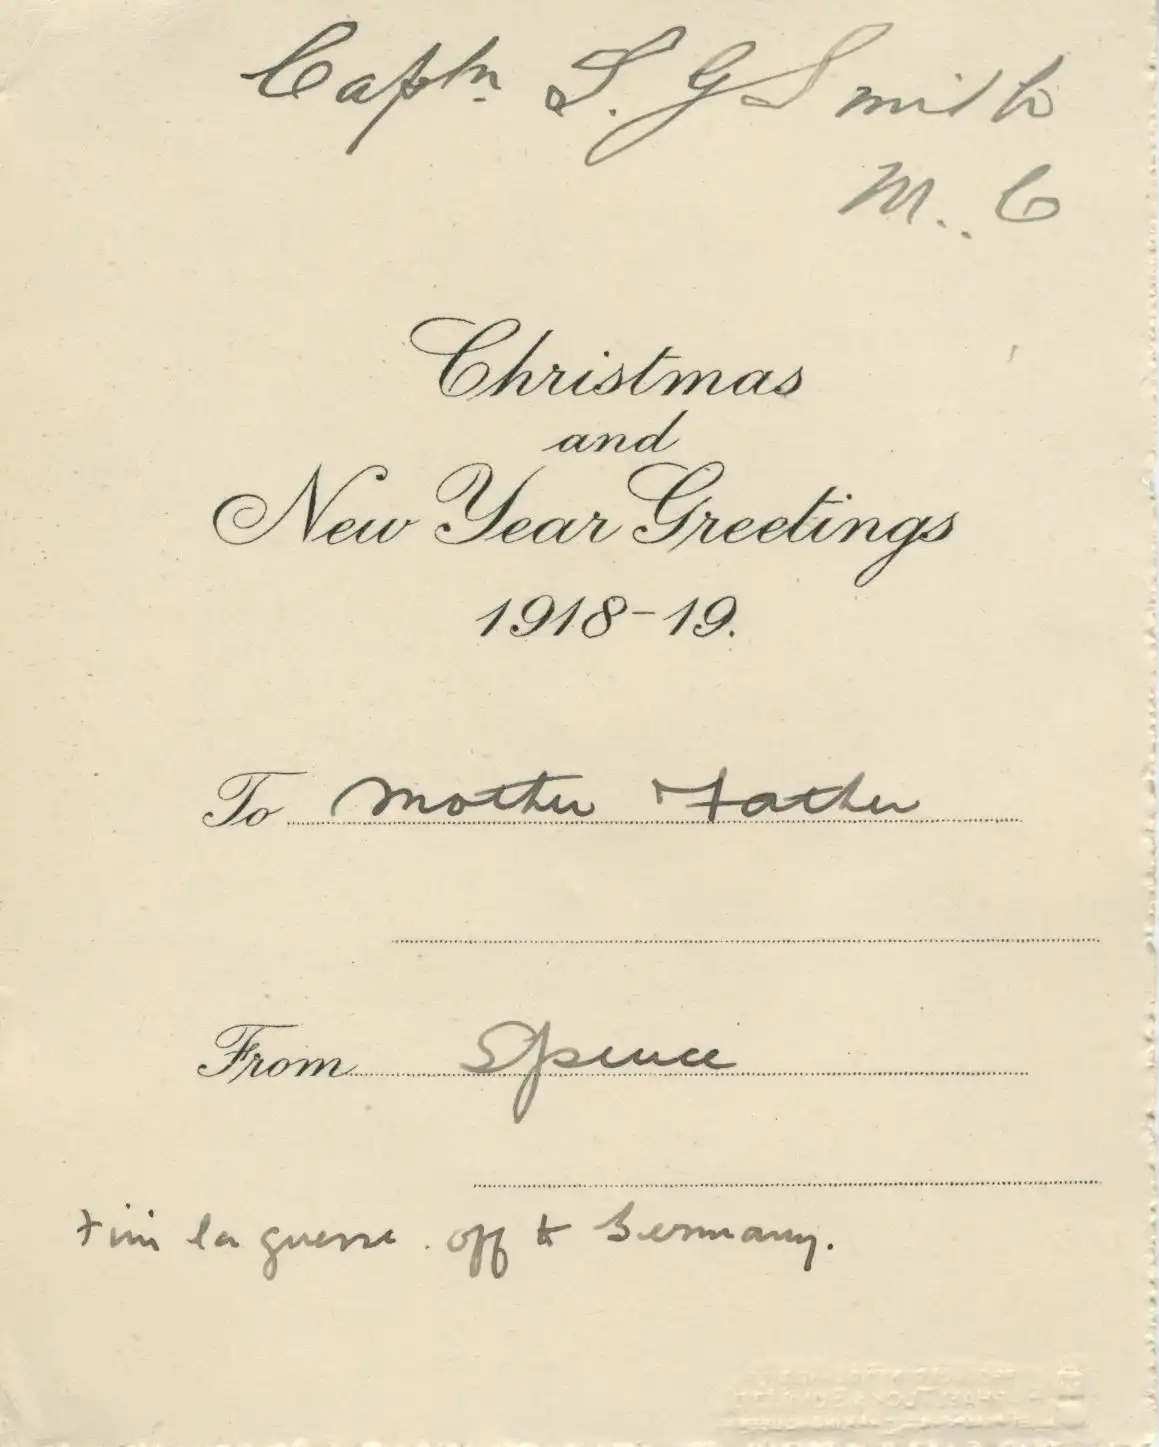 Captn. S. G Smith
M.. C
Christmas
and
New Year Greetings
1918-19.
To Mother + Father
From Spence
Fini la guerre. off to Germany.